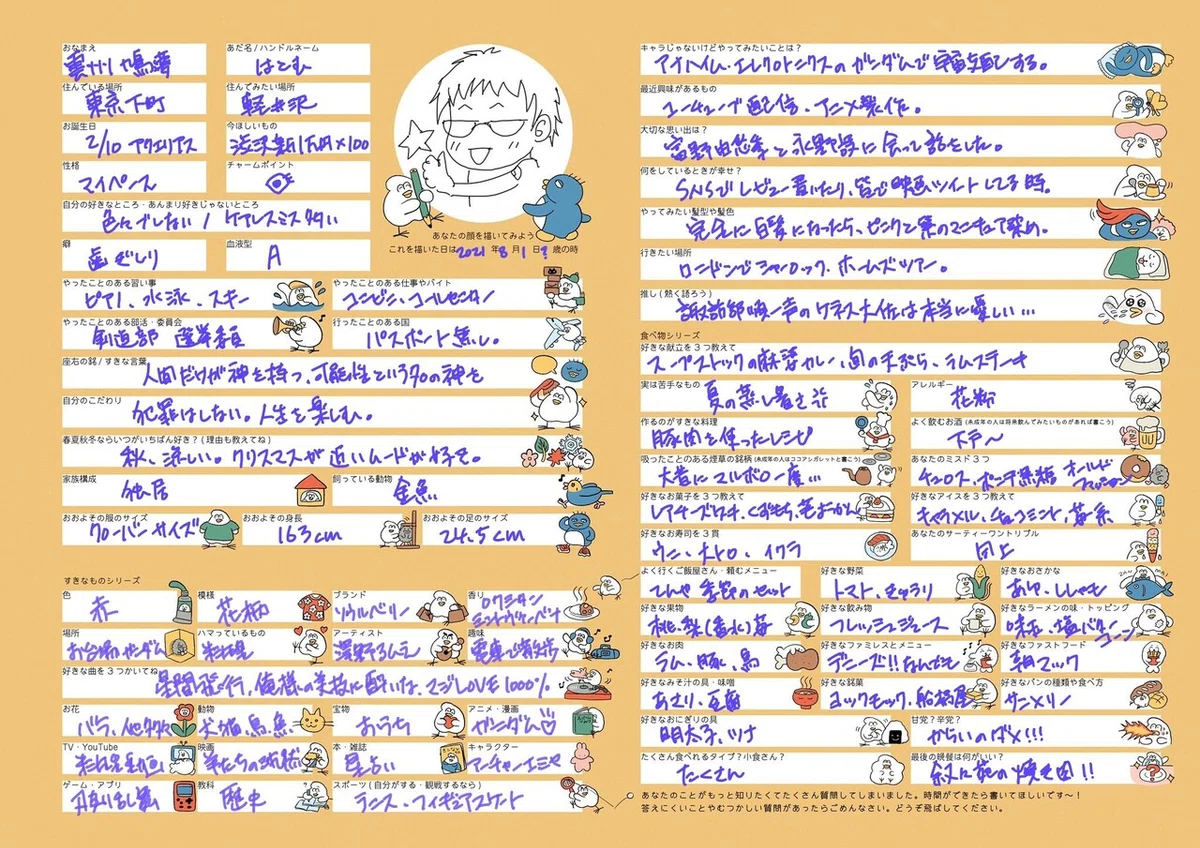 おなまえ
あだ名/ハンドルネーム
はとむ
住んでいる場所
東京下町
住んでみたい場所
軽井沢
お誕生日
2/10 アクエリアス
今ほしいもの
渋沢新1万円×100
性格
マイペース
チャームポイント
自分の好きなところ・あんまり好きじゃないところ
色んでしない / ケアレスミス多い
癖
歯ぎしり
血液型
A
あなたの顔を描いてみよう
これを描いた日は2021年8月1日?歳の時
やったことのある習い事
ピアノ、水泳、スキー
やったことのある仕事やバイト
コンビニ、コールセンター
やったことのある部活・委員会
剣道部 選挙委員
行ったことのある国
パスポート無し。
座右の銘/すきな言葉
人間だけが神を持つ、可能性という名の神を
自分のこだわり
犯罪はしない。人生を楽しむ。
春夏秋冬ならいつがいちばん好き?(理由も教えてね)
秋、涼しい。クリスマスが近いムードが好き。
家族構成
独居
飼っている動物
金魚
おおよその服のサイズ
おおよその身長
163cm
おおよその足のサイズ
24.5cm
すきなものシリーズ
色
赤
模様
花柄
ブランド
ソウルベリー
香り
ロクシタン
場所
お台場ガンダム
ハマっているもの
アーティスト
趣味
好きな曲を3つかいてね
星間飛行、俺様の美技に酔いな、マジLOVE1000%
お花
バラ、他多数
動物
犬、猫、鳥、魚
宝物
おうち
アニメ・漫画
ガンダム♡
TV・YouTube
映画
本・雑誌
星占い
キャラクター
アーチャーエミヤ
ゲーム・アプリ
刀剣乱舞
教科
歴史
スポーツ(自分がする・観戦するなら)
テニス、フィギュアスケート
キャラじゃないけどやってみたいことは?
アナハイム・エレクトロニクスのガンダムで宇宙支配する。
最近興味があるもの
ユーチューブ配信、アニメ製作。
大切な思い出は?
富野由悠季と永野護に会って話をした。
何をしているときが幸せ?
SNSでレビュー書いたり、皆で映画ツイートしてる時。
やってみたい髪型や髪色
完全に白髪になったら、ピンクと紫のマニキュア染め。
行きたい場所
ロンドンでシャーロック・ホームズツアー。
推し(熱く語ろう)
諏訪部順一声のケネス大佐は本当に優しい…
食べ物シリーズ
好きな献立を3つ教えて
スープストックの麻婆カレー、茄の天ぷら、ラムステーキ
実は苦手なもの
夏の蒸し暑さ
アレルギー
花粉
作るのがすきな料理
豚肉を使ったレシピ
よく飲むお酒(未成年の人は将来飲んでみたいものがあれば書こう)
下戸〜
吸ったことのある煙草の銘柄(未成年の人はココアシガレットと書こう)
大昔にマルボロ一度…
あなたのミスド3つ
チュロス、ポンデ黒糖 オールドファッション
好きなお菓子を3つ教えて
レアチーズケーキ、くずもち、芋ようかん
好きなアイスを3つ教えて
キャラメル、チョコミント、苺系
好きなお寿司を3貫
ウニ、大トロ、イクラ
あなたのサーティーワントリプル
同上
よく行くご飯屋さん・頼むメニュー
てんや 季節のセット
好きな野菜
トマト、きゅうり
好きなおさかな
あゆ、ししゃも
好きな果物
桃、梨(香水)苺
好きな飲み物
フレッシュジュース
好きなラーメンの味・トッピング
味玉、塩バターコーン
好きなお肉
ラム、豚、鳥
好きなファミレスとメニュー
デニーズ!!なんでも
好きなファストフード
朝マック
好きなみそ汁の具・味噌
あさり、豆腐
好きな銘菓
ヨックモック、船橋屋
好きなパンの種類や食べ方
サンメリー
好きなおにぎりの具
明太子、ツナ
甘党?辛党?
からいのダメ!!!
たくさん食べれるタイプ?小食さん?
たくさん
最後の晩餐は何がいい?
叙々苑の焼き肉!!
あなたのことがもっと知りたくてたくさん質問してしまいました。時間ができたら書いてほしいです〜!
答えにくいことやむつかしい質問があったらごめんなさい。どうぞ飛ばしてください。